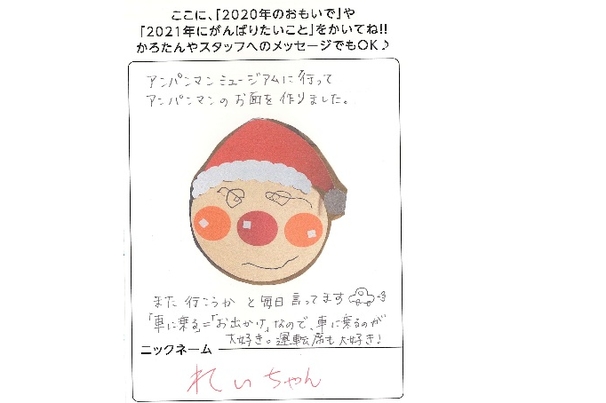 ここに、「2020年のおもいで」や
「2021年にがんばりたいこと」をかいてね!!
かろたんやスタッフへのメッセージでもOK♪
アンパンマンミュージアムに行って
アンパンマンのお面を作りました。
また行こうか と毎日言ってます
「車に乗る」=「お出かけ」なので、車に乗るのが
大好き。運転席も大好き♪
ニックネーム
れいちゃん